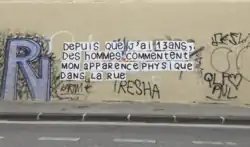 DEPUIS QUE J'AI 13 ANS,
DES HOMMES COMMENTENT
MON APPARENCE PHYSIQUE
DANS LA RUE
IRESHA